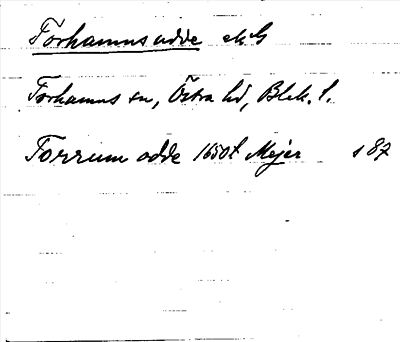 Torhamns udde ek. G
Torhamns sn, Östra hd, Blek. l.
Torrum odde 1650t Mejer s 87